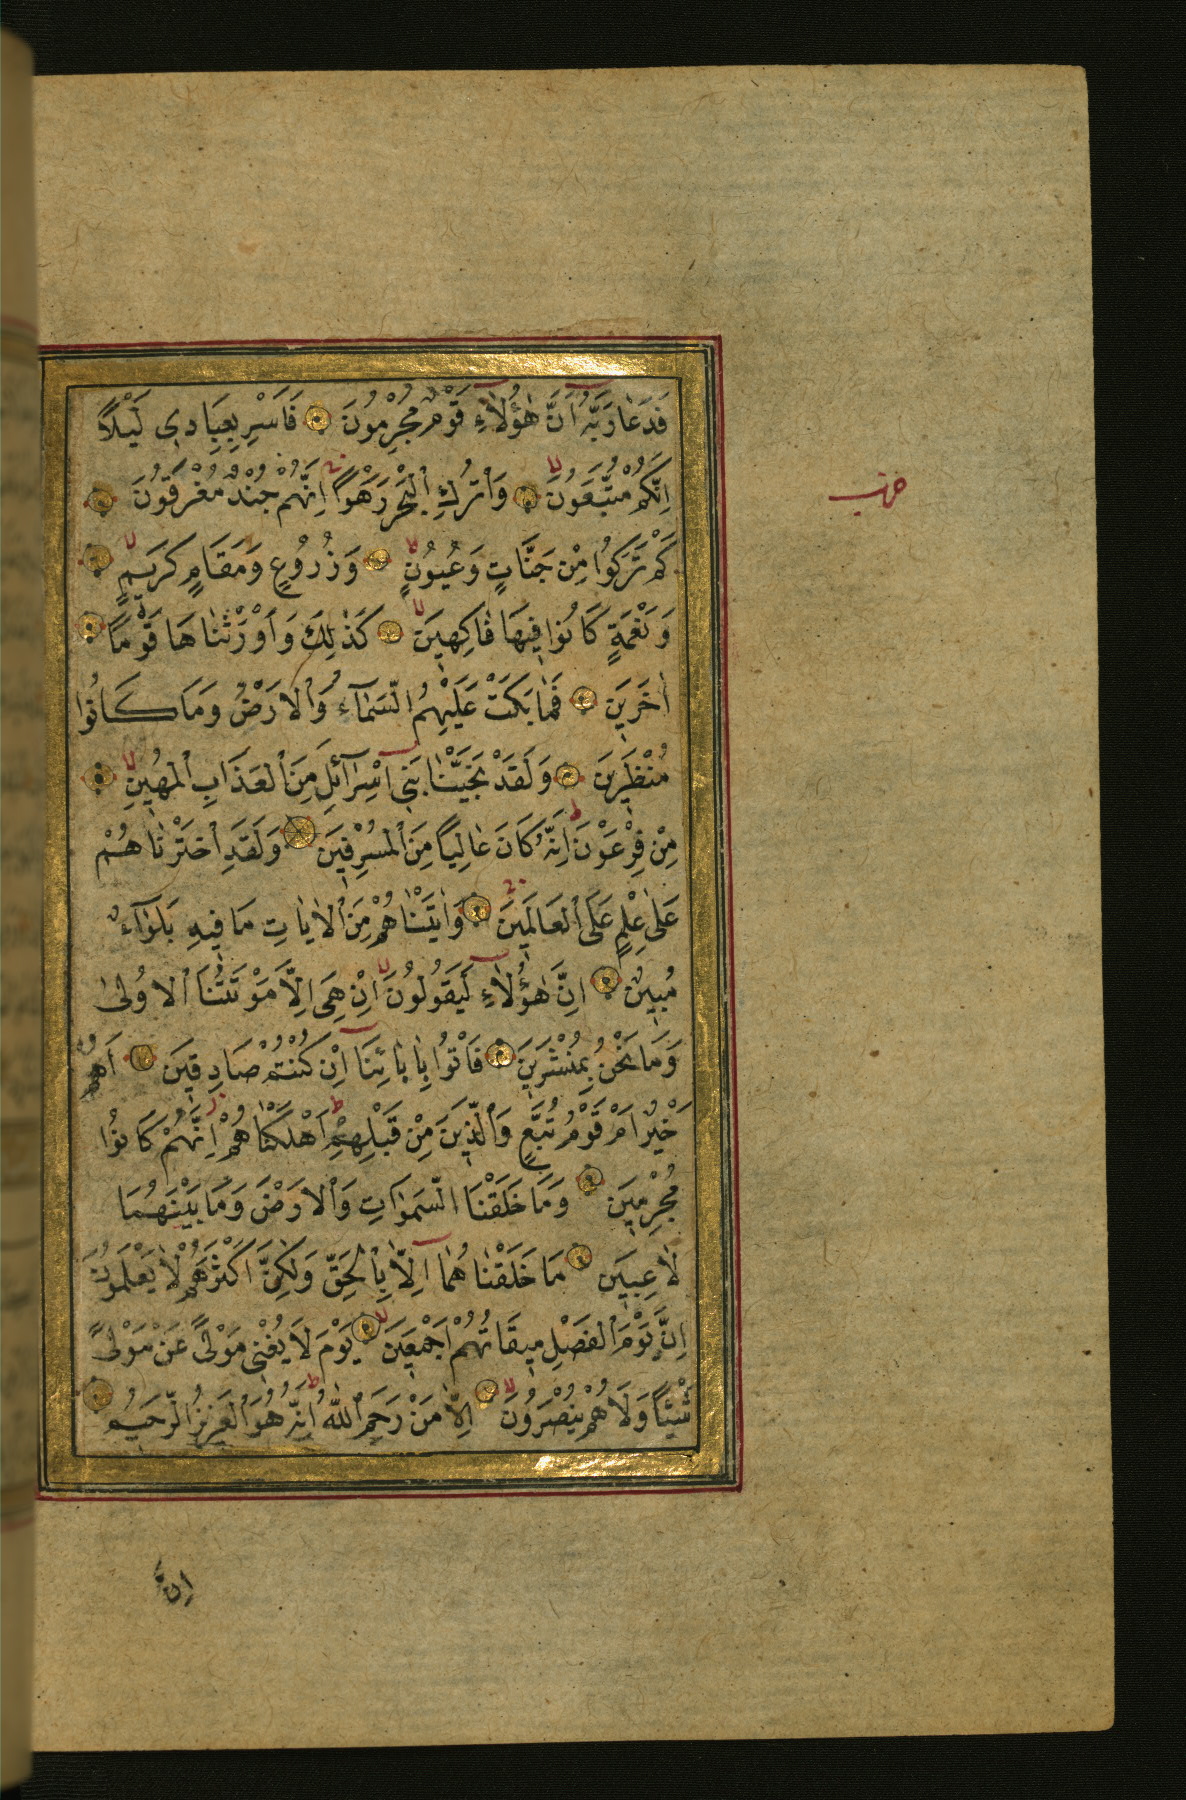 فَدَعَا رَبَّهُ اَنَّ هٰؤُلَاءِ قَوْمٌ مُجْرِمُونَ فَاَسْرِ بِعِبَادِى لَيْلًا
اِنَّكُمْ مُتَّبَعُونَ وَاتْرُكِ الْبَحْرَ رَهْوًا اِنَّهُمْ جُنْدٌ مُغْرَقُونَ
كَمْ تَرَكُوا مِنْ جَنَّاتٍ وَعُيُونٍ وَزُرُوعٍ وَمَقَامٍ كَرِيمٍ
وَنَعْمَةٍ كَانُوا فِيهَا فَاكِهِينَ كَذٰلِكَ وَاَوْرَثْنَاهَا قَوْمًا
اٰخَرِينَ فَمَا بَكَتْ عَلَيْهِمُ السَّمَآءُ وَالْاَرْضُ وَمَا كَانُوا
مُنْظَرِينَ وَلَقَدْ نَجَّيْنَا بَنِى اِسْرَآئِلَ مِنَ الْعَذَابِ الْمُهِينِ
مِنْ فِرْعَوْنَ اِنَّهُ كَانَ عَالِيًا مِنَ الْمُسْرِفِينَ وَلَقَدِ اخْتَرْنَاهُمْ
عَلٰى عِلْمٍ عَلَى الْعَالَمِينَ وَاٰتَيْنَاهُمْ مِنَ الْاٰيَاتِ مَا فِيهِ بَلٰٓوءٌ
مُبِينٌ اِنَّ هٰؤُلَاءِ لَيَقُولُونَ اِنْ هِىَ اِلَّا مَوْتَتُنَا الْاُولٰى
وَمَا نَحْنُ بِمُنْشَرِينَ فَاْتُوا بِاٰبَائِنَا اِنْ كُنْتُمْ صَادِقِينَ اَهُمْ
خَيْرٌ اَمْ قَوْمُ تُبَّعٍ وَالَّذِينَ مِنْ قَبْلِهِمْ اَهْلَكْنَاهُمْ اِنَّهُمْ كَانُوا
مُجْرِمِينَ وَمَا خَلَقْنَا السَّمٰوَاتِ وَالْاَرْضَ وَمَا بَيْنَهُمَا
لَاعِبِينَ مَا خَلَقْنَاهُمَا اِلَّا بِالْحَقِّ وَلٰكِنَّ اَكْثَرَهُمْ لَا يَعْلَمُونَ
اِنَّ يَوْمَ الْفَصْلِ مِيقَاتُهُمْ اَجْمَعِينَ يَوْمَ لَا يُغْنِى مَوْلًى عَنْ مَوْلًى
شَيْئًا وَلَا هُمْ يُنْصَرُونَ اِلَّا مَنْ رَحِمَ اللّٰهُ اِنَّهُ هُوَ الْعَزِيزُ الرَّحِيمُ
اِنَّ